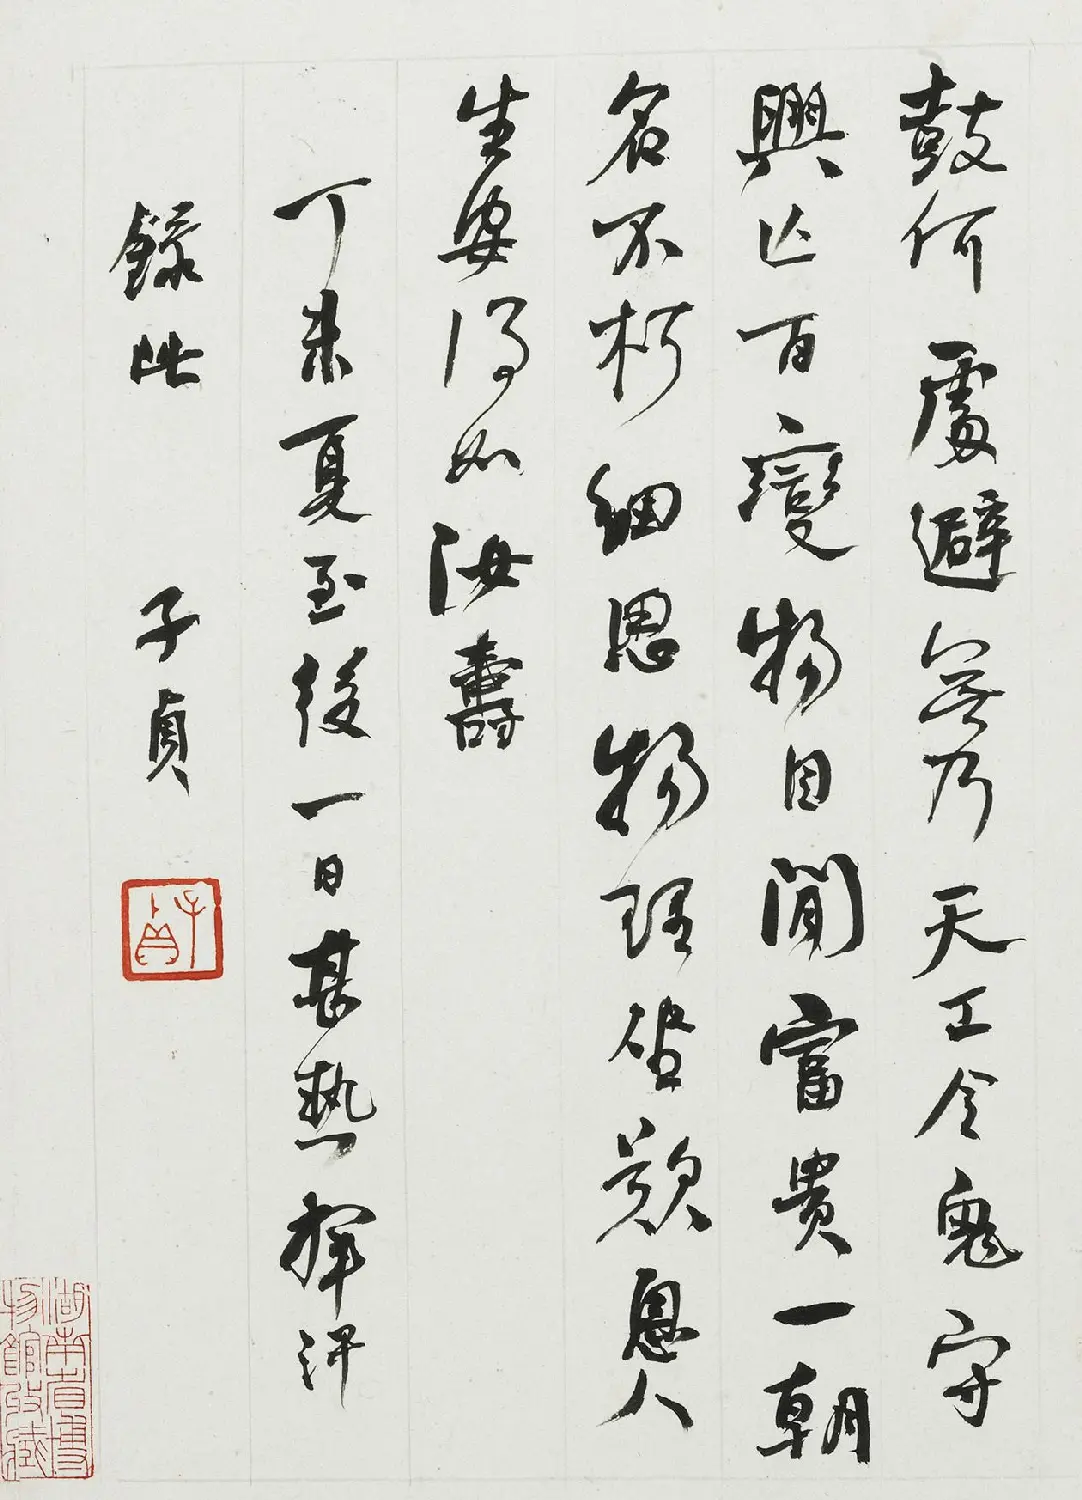 鼓何處避無乃天工令鬼守
興亡百變物自閒富貴一朝
名不朽細思物理坐歎息人
生安得如汝壽
丁未夏至後一日甚熱揮汗
錄此 子貞
子貞
湖南省博
物館收藏